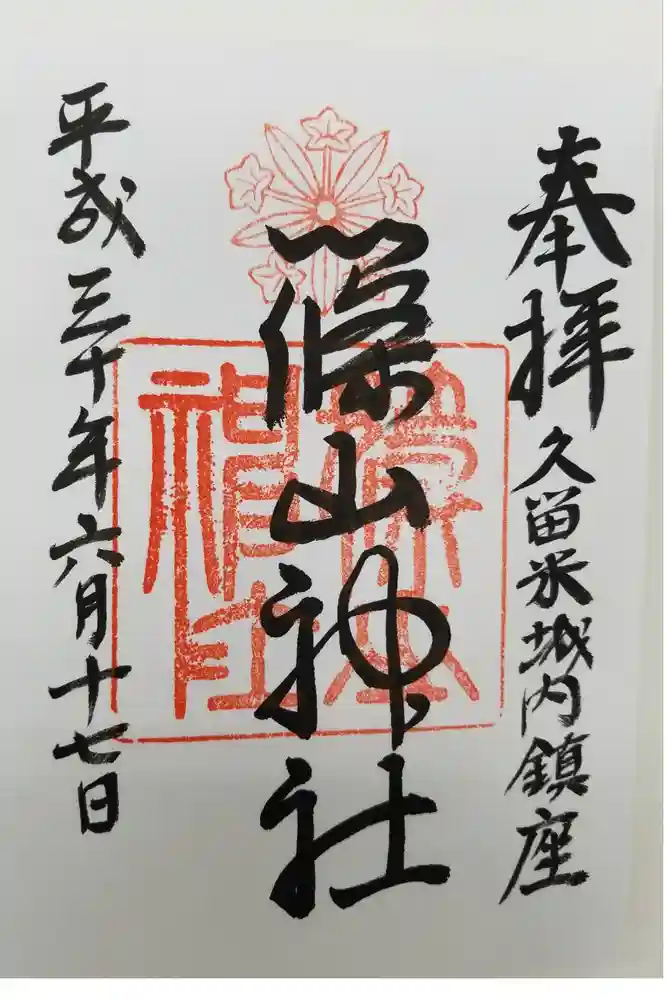 奉拝
久留米城内鎮座
篠山神社
平成三十年六月十七日